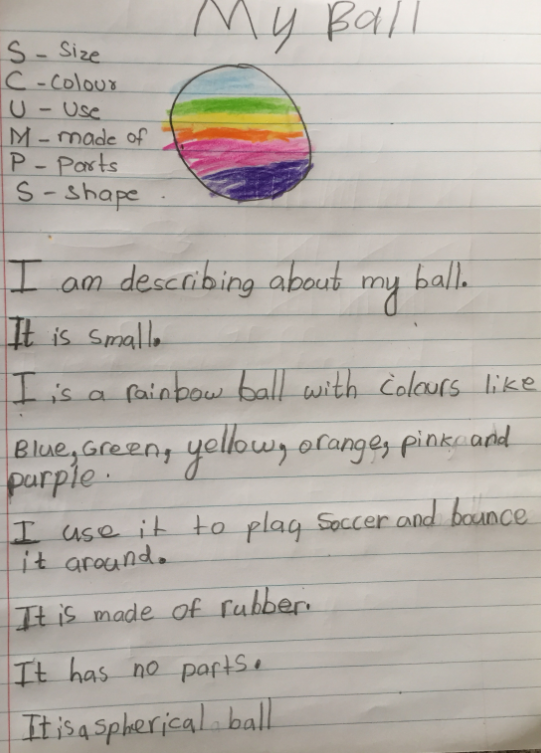 My Ball
S - Size
C - Colour
U - Use
M - made of
P - Parts
S - Shape
I am describing about my ball.
It is small.
I is a rainbow ball with colours like
Blue, Green, yellow, orange, pink and
purple.
I use it to play Soccer and bounce
it around.
It is made of rubber.
It has no parts.
It is a spherical ball